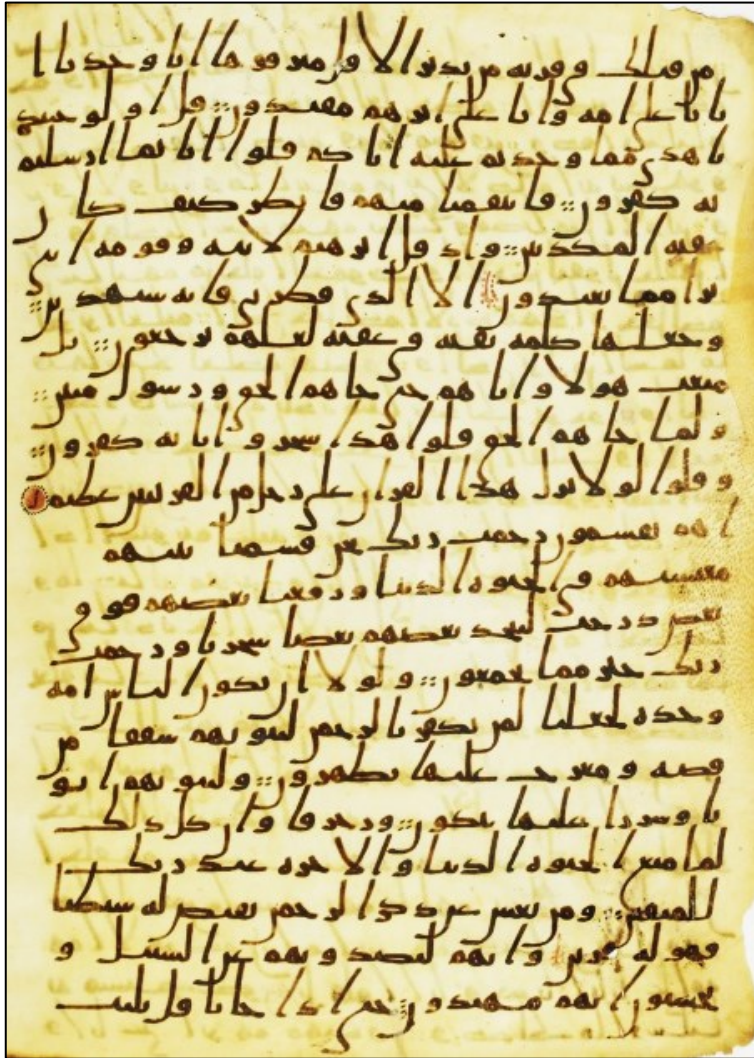 من قبلك في قرية من نذير الا قل مترفوها انا وجدنا ا
بانا على امة وانا على اثرهم مقتدون قل اولو جئتكم
باهدى مما وجدتم عليه اباكم قلوا انا بما ارسلتم
به كفرون فانتقمنا منهم فانظر كيف كا ن
عقبة المكذبين واذ قل ابرهيم لابيه وقومه انني
برا مما تعبدون الا الذي فطرني فانه سيهدين
وجعلها كلمة بقية في عقبه لعلهم يرجعون بل
متعت هولا واباهم حتى جاهم الحق ورسول مبين
ولما جاهم الحق قلوا هذا سحر وانا به كفرون
وقلوا لولا نزل هذا القران على رجل من القريتين عظيم
اهم يقسمون رحمت ربك نحن قسمنا بينهم
معيشتهم في الحيوة الدنيا ورفعنا بعضهم فوق
بعض درجت ليتخذ بعضهم بعضا سخريا ورحمت
ربك خير مما يجمعون ولولا ان يكون الناس امة
وحدة لجعلنا لمن يكفر بالرحمن لبيوتهم سقفا من
فضة ومعرج عليها يظهرون ولبيوتهم ابو
با وسررا عليها يتكون وزخرفا وان كل ذلك
لما متع الحيوة الدنيا والاخرة عند ربك
للمتقين ومن يعش عن ذكر الرحمن نقيض له شيطنا
فهو له قرين وانهم ليصدونهم عن السبيل و
يحسبون انهم مهتدون حتى اذا جانا قل يليت